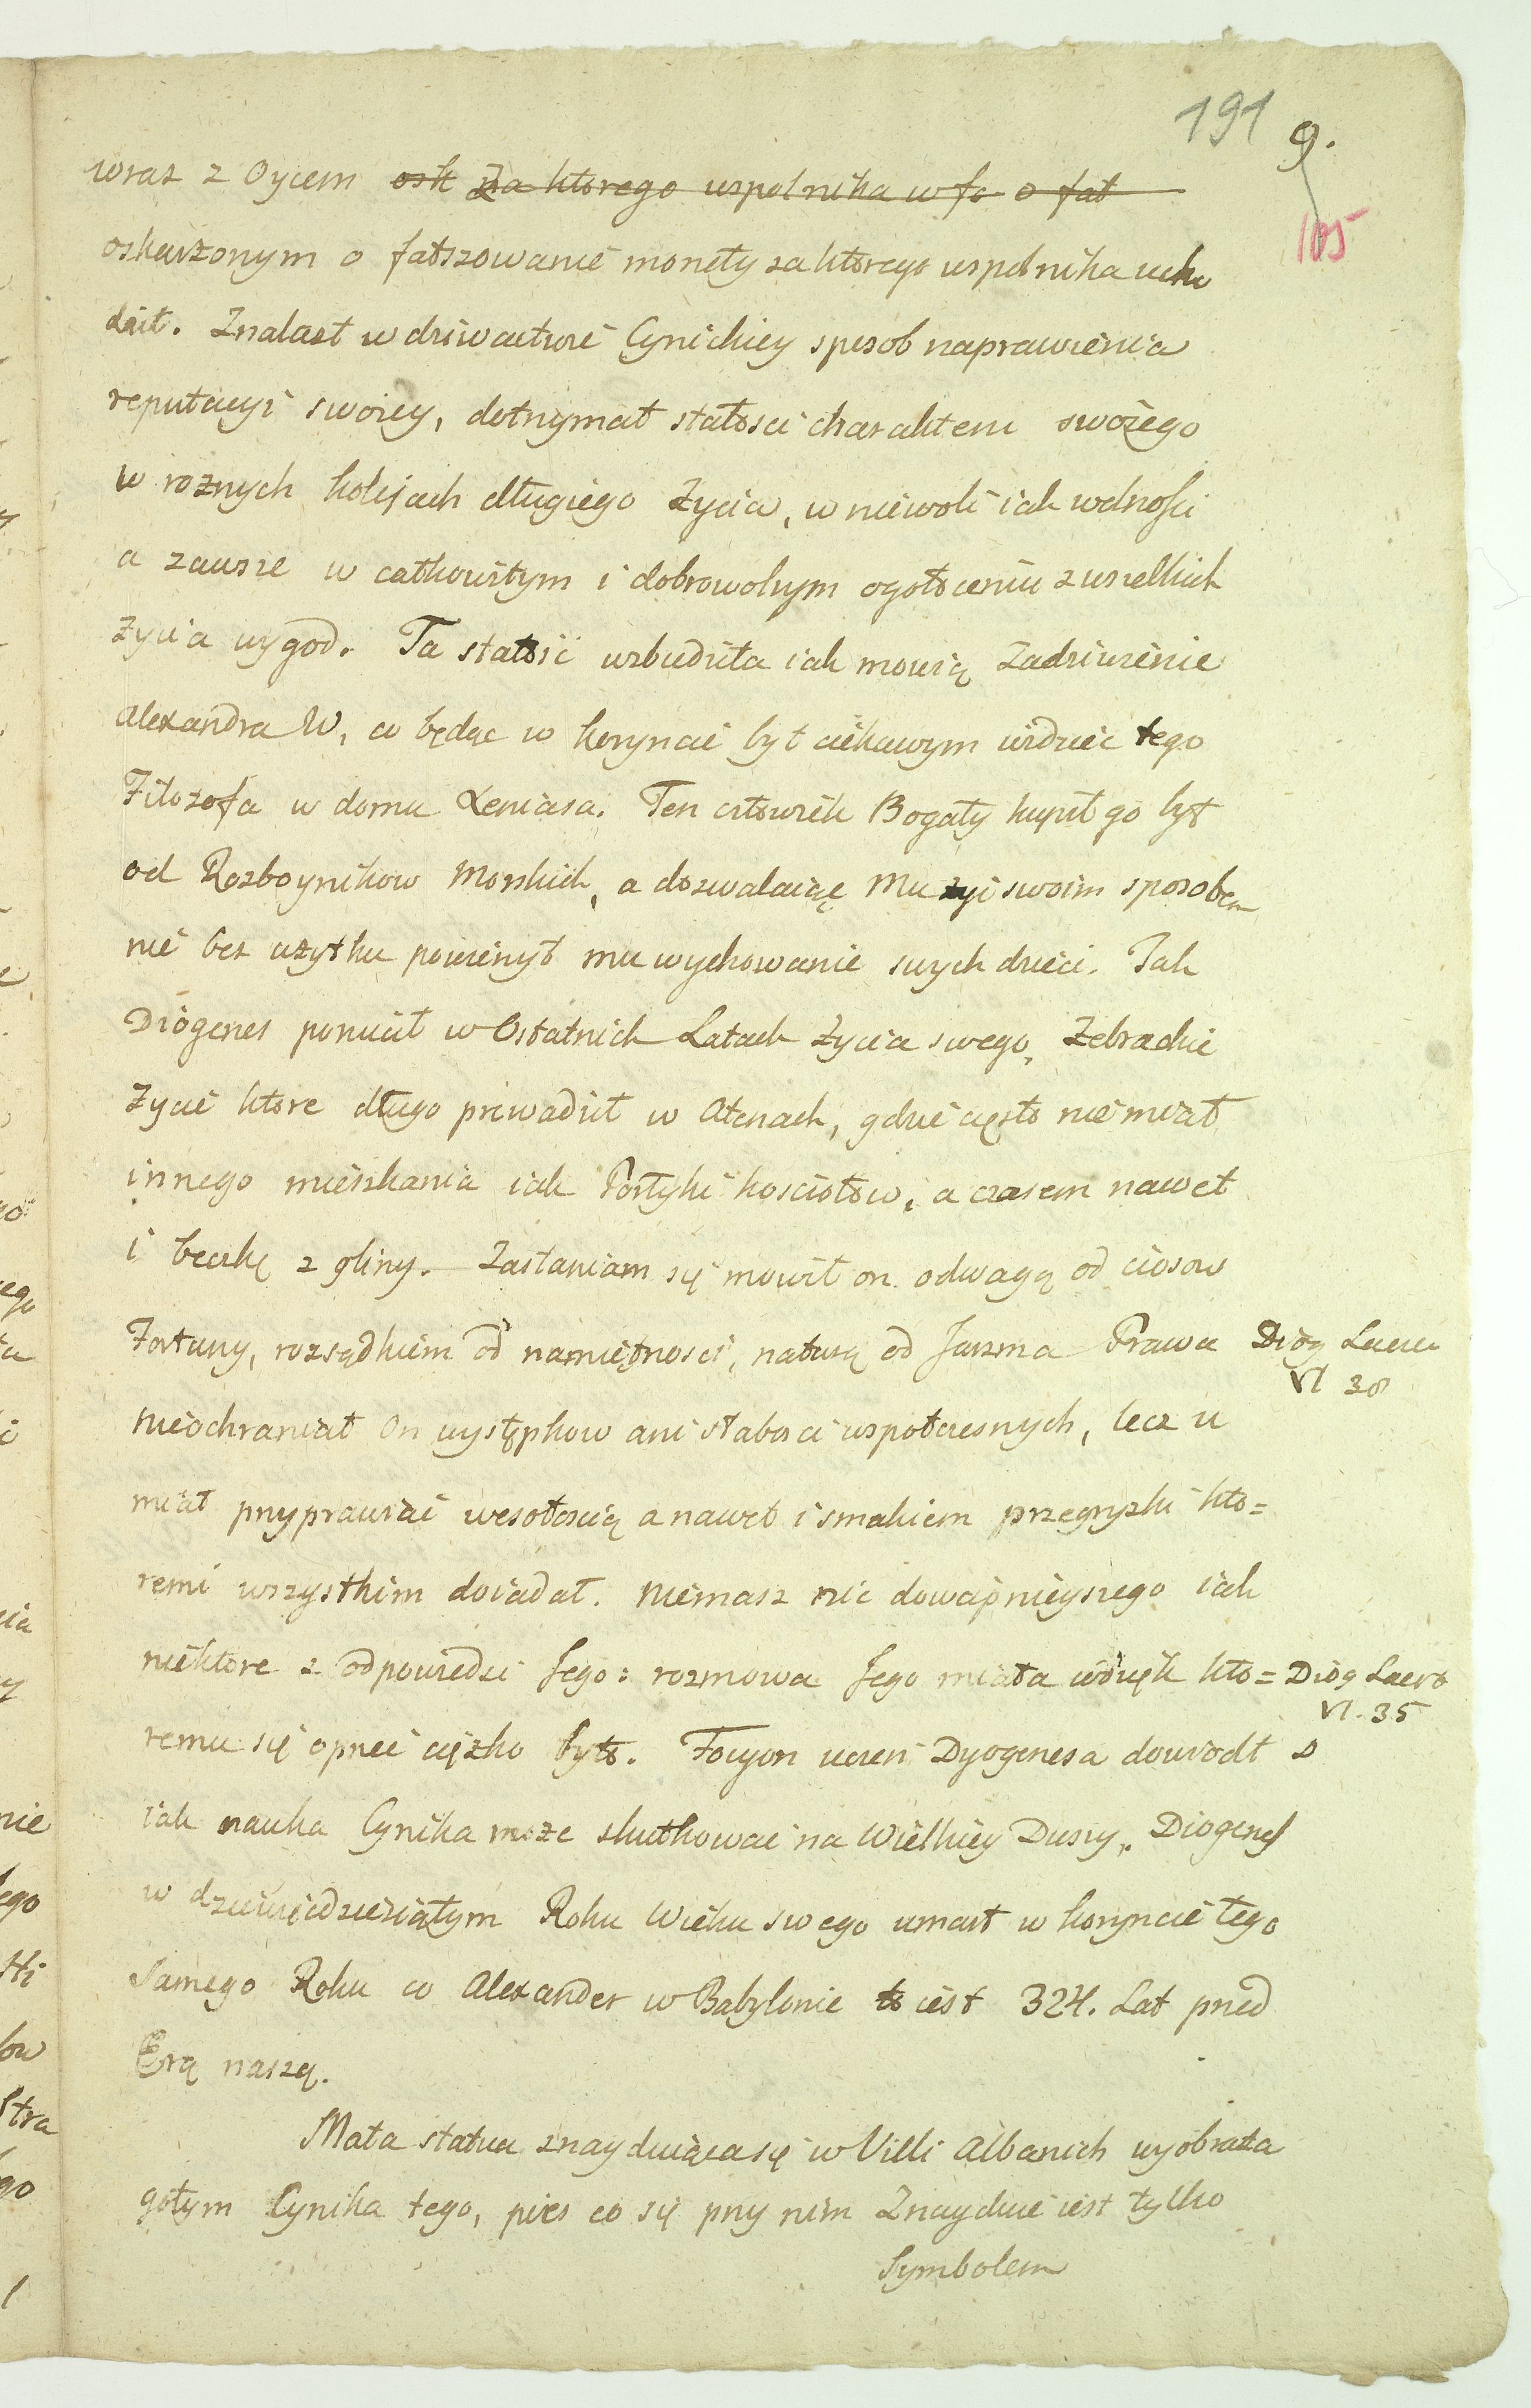 191 9.
105
wraz z Oycem osk Za ktorego wspolnika w fa o fał
oskarżonym o fałszowanie monety za ktorego wspolnika ucho
dził. Znalazł w dziwactwie Cynickiey sposob naprawienia
reputacyi swoiey, dotrzymał stałosci charakteru swoiego
w roznych kolejach długiego Zycia, w niewoli iak wolnosci
a zawsze w całkowitym i dobrowolnym ogołoceniu z wszelkich
życia wygod. Ta stałosć wzbudziła iak mowią Zadziwienie
Alexandra W, co będąc w Koryncie był ciekawym widziec tego
Filozofa w domu Xeniasa. Ten człowiek Bogaty kupił go był
od Rozboynikow Morskich, a dozwalaiąc Mu żyć swoim sposobem
nie bez użytku powierzył mu wychowanie swych dzieci. Tak
Diogenes porzucił w Ostatnich Latach życia swego, Zebrackie
życie ktore długo prowadził w Atenach, gdzie często nie miał
innego mieszkania iak Portyki kosciołow, a czasem nawet
i beczkę z gliny. Zasłaniam się mowił on odwagą od ciosow
Fortuny, rozsądkiem od namiętnosci, naturą od Jarzma Prawa Diog Laer
VI 38
Nieochraniał On występkow ani słabosci wspołczesnych, lecz u
miał przyprawiać wesołoscią a nawet i smakiem przegryzki kto=
remi wszystkim doiadał. Niemasz nic dowcipnieyszego iak
niektore z odpowiedzi Jego: rozmowa Jego miała wdzięk kto= Diog Laert
VI. 35
remu się oprzec cięzko było. Focyon uczeń Dyogenesa dowiodł
iak nauka Cynika moze skutkowac na Wielkiey Duszy. Diogenes
w dziewiędziesiątym Roku Wieku swego umarł w Koryncie tego
Samego Roku co Alexander w Babylonie to iest 324. Lat przed
Erą naszą.
Mała statua znayduiąca się w Villi Albanich wyobraża
gołym Cynika tego, pies co się przy nim Znayduie iest tylko
Symbolem